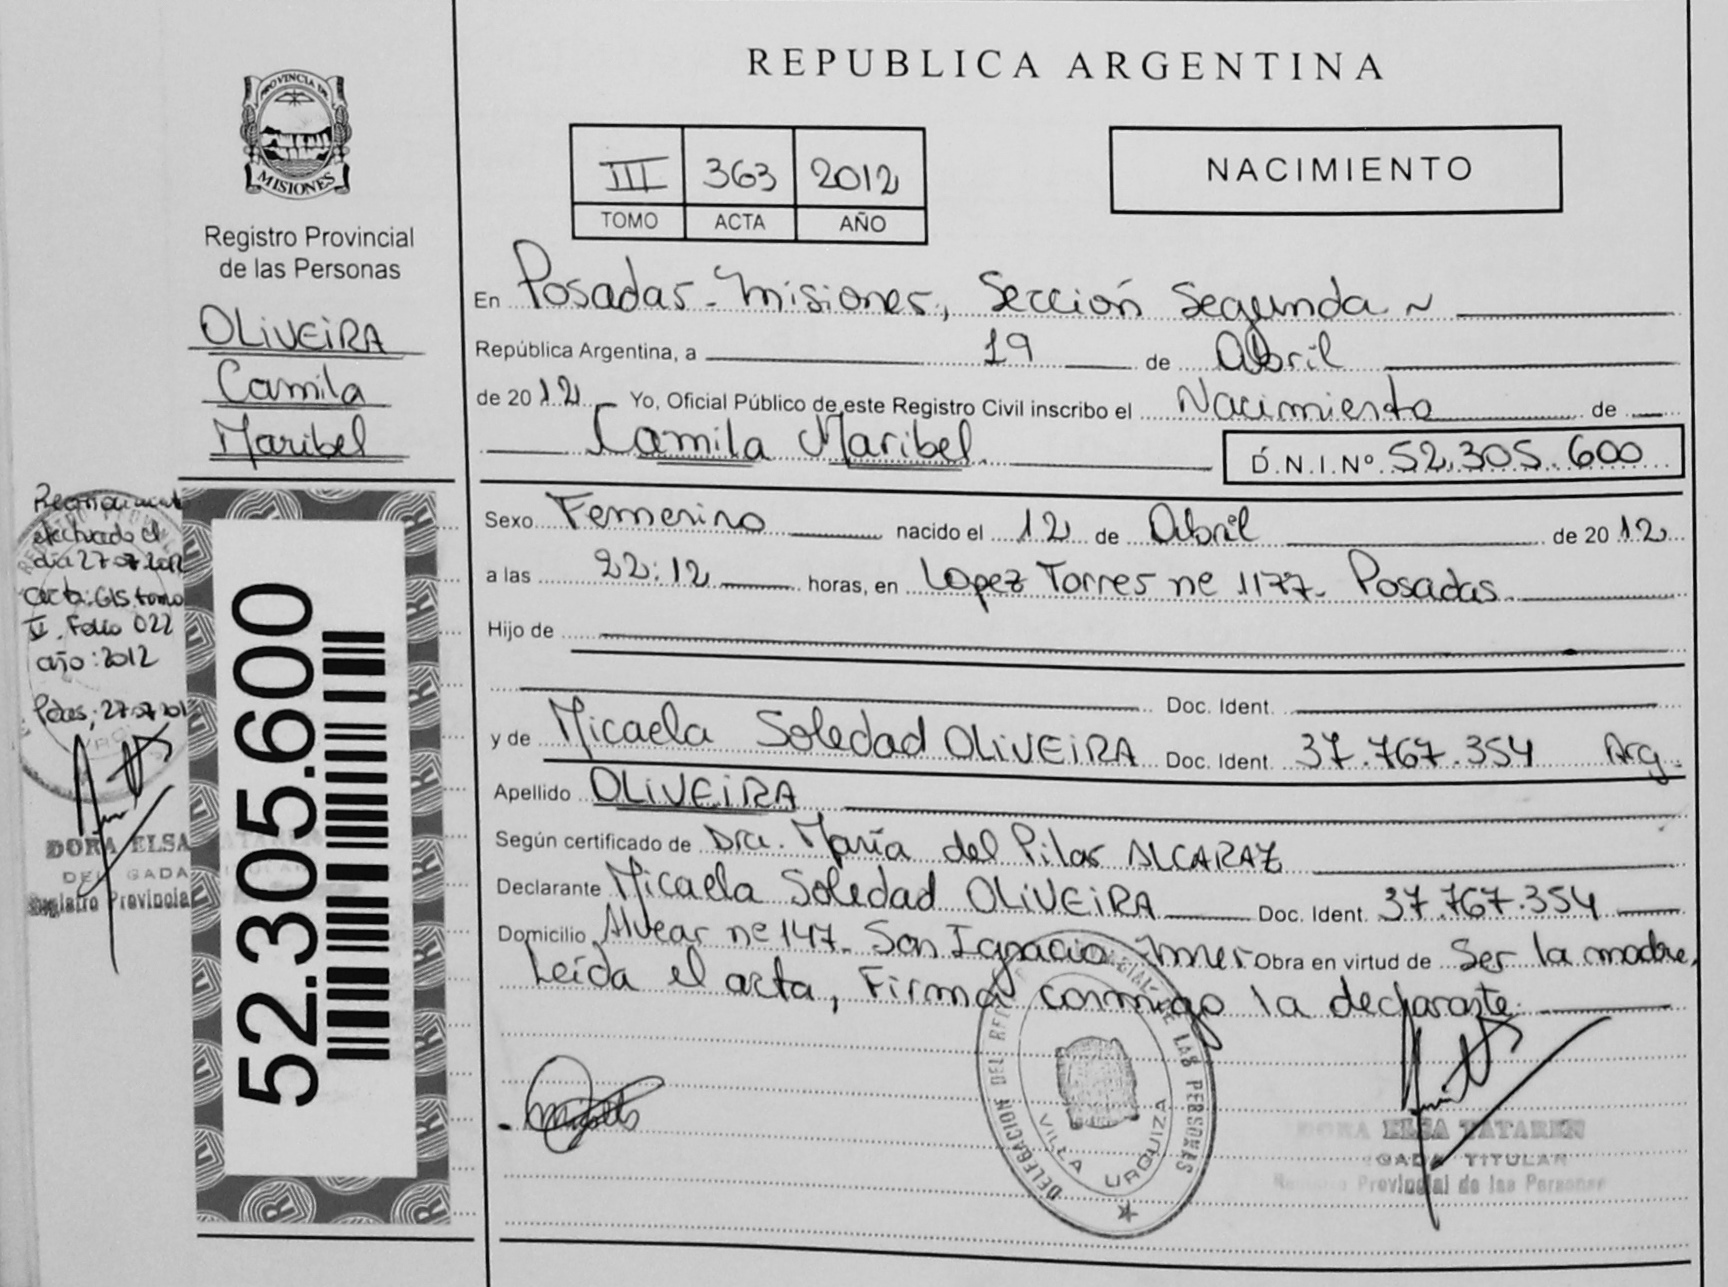 REPUBLICA ARGENTINA
PROVINCIA DE
MISIONES
Registro Provincial
de las Personas
III 363 2012
TOMO ACTA AÑO
NACIMIENTO
OLIVEIRA
Camila
Maribel
En Posadas - Misiones, Sección Segunda
República Argentina, a 19 de Abril
de 2012 Yo, Oficial Público de este Registro Civil inscribo el Nacimiento de
Camila Maribel D.N.I.Nº 52.305.600
Sexo Femenino nacido el 12 de Abril de 2012
a las 22:12 horas, en Lopez Torres nº 1177 - Posadas
Hijo de
Doc. Ident.
y de Micaela Soledad OLIVEIRA Doc. Ident. 37.767.354 Arg.
Apellido OLIVEIRA
Según certificado de Dra. María del Pilar ALCARAZ
Declarante Micaela Soledad OLIVEIRA Doc. Ident. 37.767.354
Domicilio Alvear nº 147 - San Ignacio Obra en virtud de Ser la madre,
Leída el acta, Firma conmigo la declarante.
Reconocimiento
efectuado el
día 27 07 2012
acta: 615 tomo
Folio 022
año: 2012
27 07
DORA ELSA
Registro Provincial
52.305.600
DELEGACION DEL REG DE LAS PERSONAS
VILLA URQUIZA
DORA ELSA TATAREN
TITULAR
Provincial de las Personas